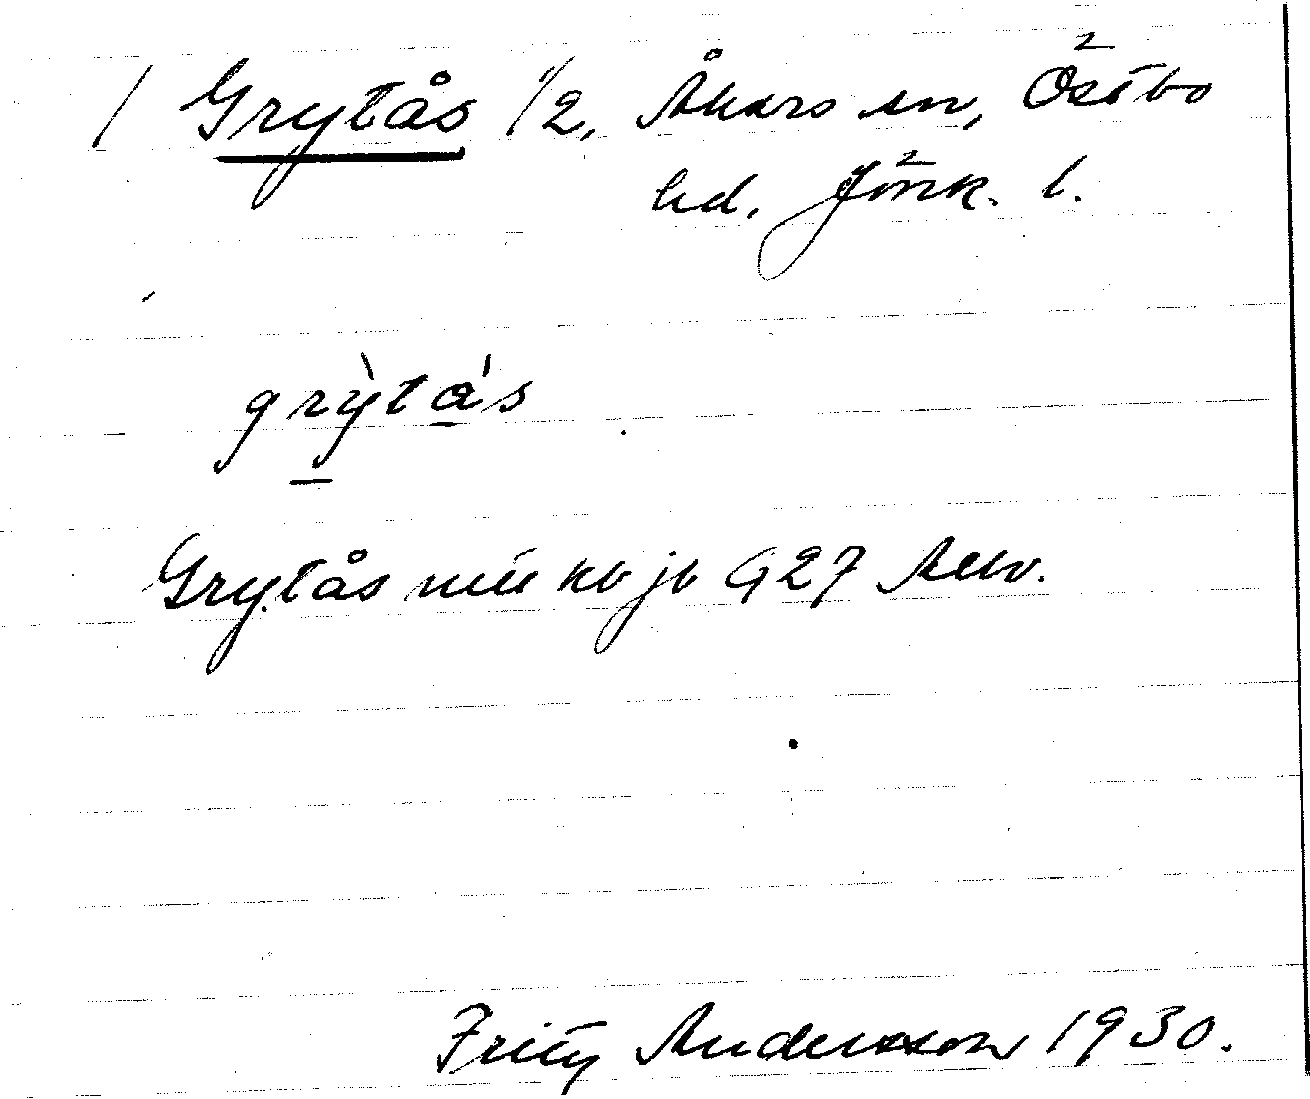 / Grytås 1/2, Åkers sn, Östbo
hd. Jönk. l.
grỳtås
Grytås mtl kb jb G 27 Aebv.
Fritz Andersson 1930.